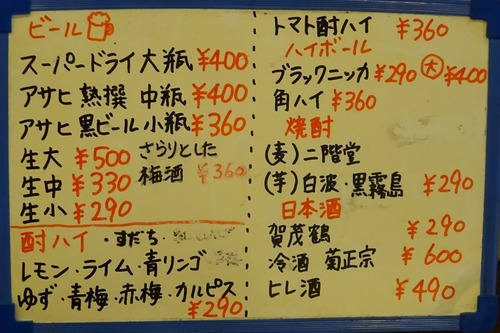 ビール
スーパードライ 大瓶 ¥400
アサヒ 熟撰 中瓶 ¥400
アサヒ 黒ビール 小瓶 ¥360
生大 ¥500
生中 ¥330
生小 ¥290
さらりとした
梅酒 ¥360
酎ハイ ・すだち・
レモン・ライム・青リンゴ
ゆず・青梅・赤梅・カルピス
¥290
トマト酎ハイ ¥360
ハイボール
ブラックニッカ ¥290 大 ¥400
角ハイ ¥360
焼酎
(麦)二階堂
(芋)白波・黒霧島 ¥290
日本酒
賀茂鶴 ¥290
冷酒 菊正宗 ¥600
ヒレ酒 ¥490